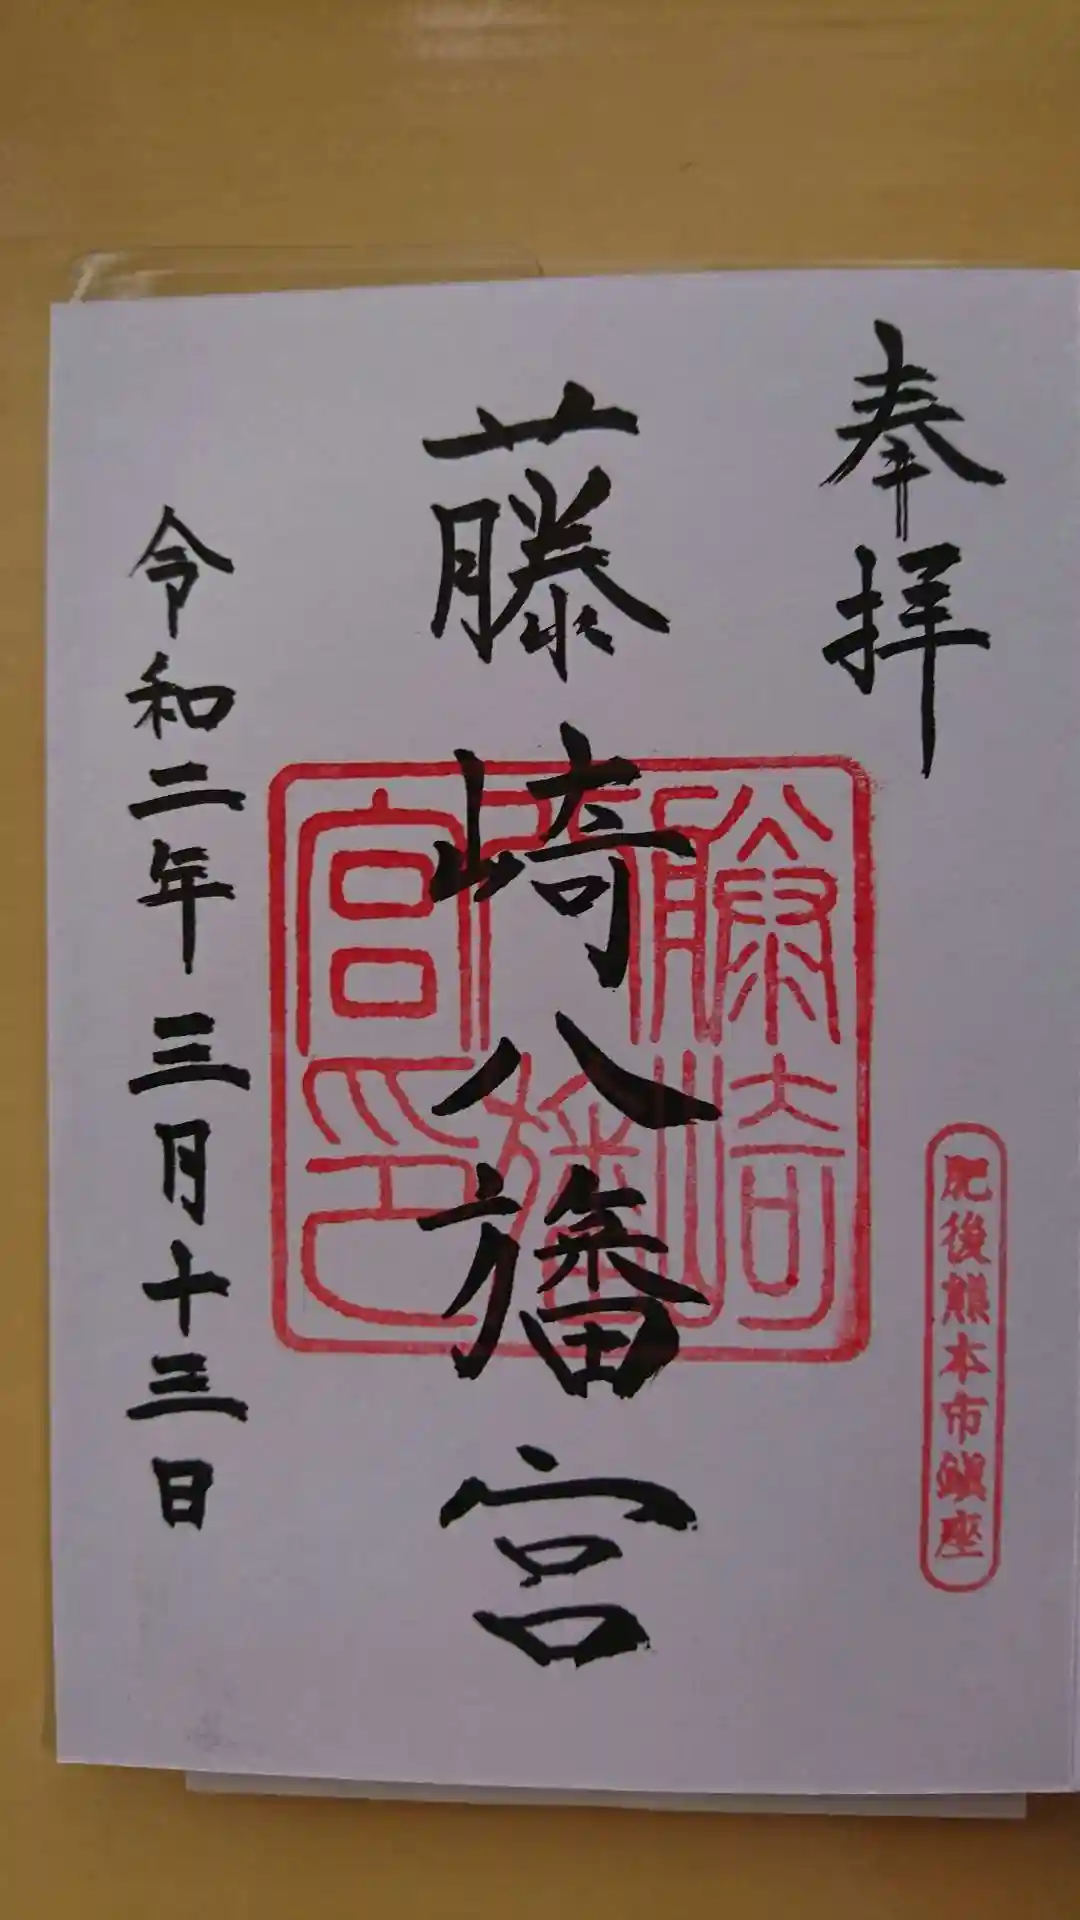 奉拝
肥後熊本市鎮座
藤崎八旛宮
藤崎
八旛
宮印
令和二年三月十三日